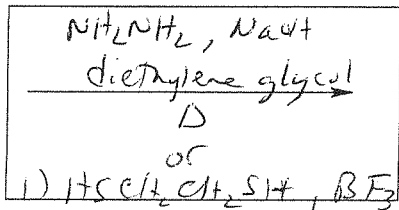 NH₂NH₂, NaOH
diethylene glycol
Δ
or
1) HSCH₂CH₂SH, BF₃